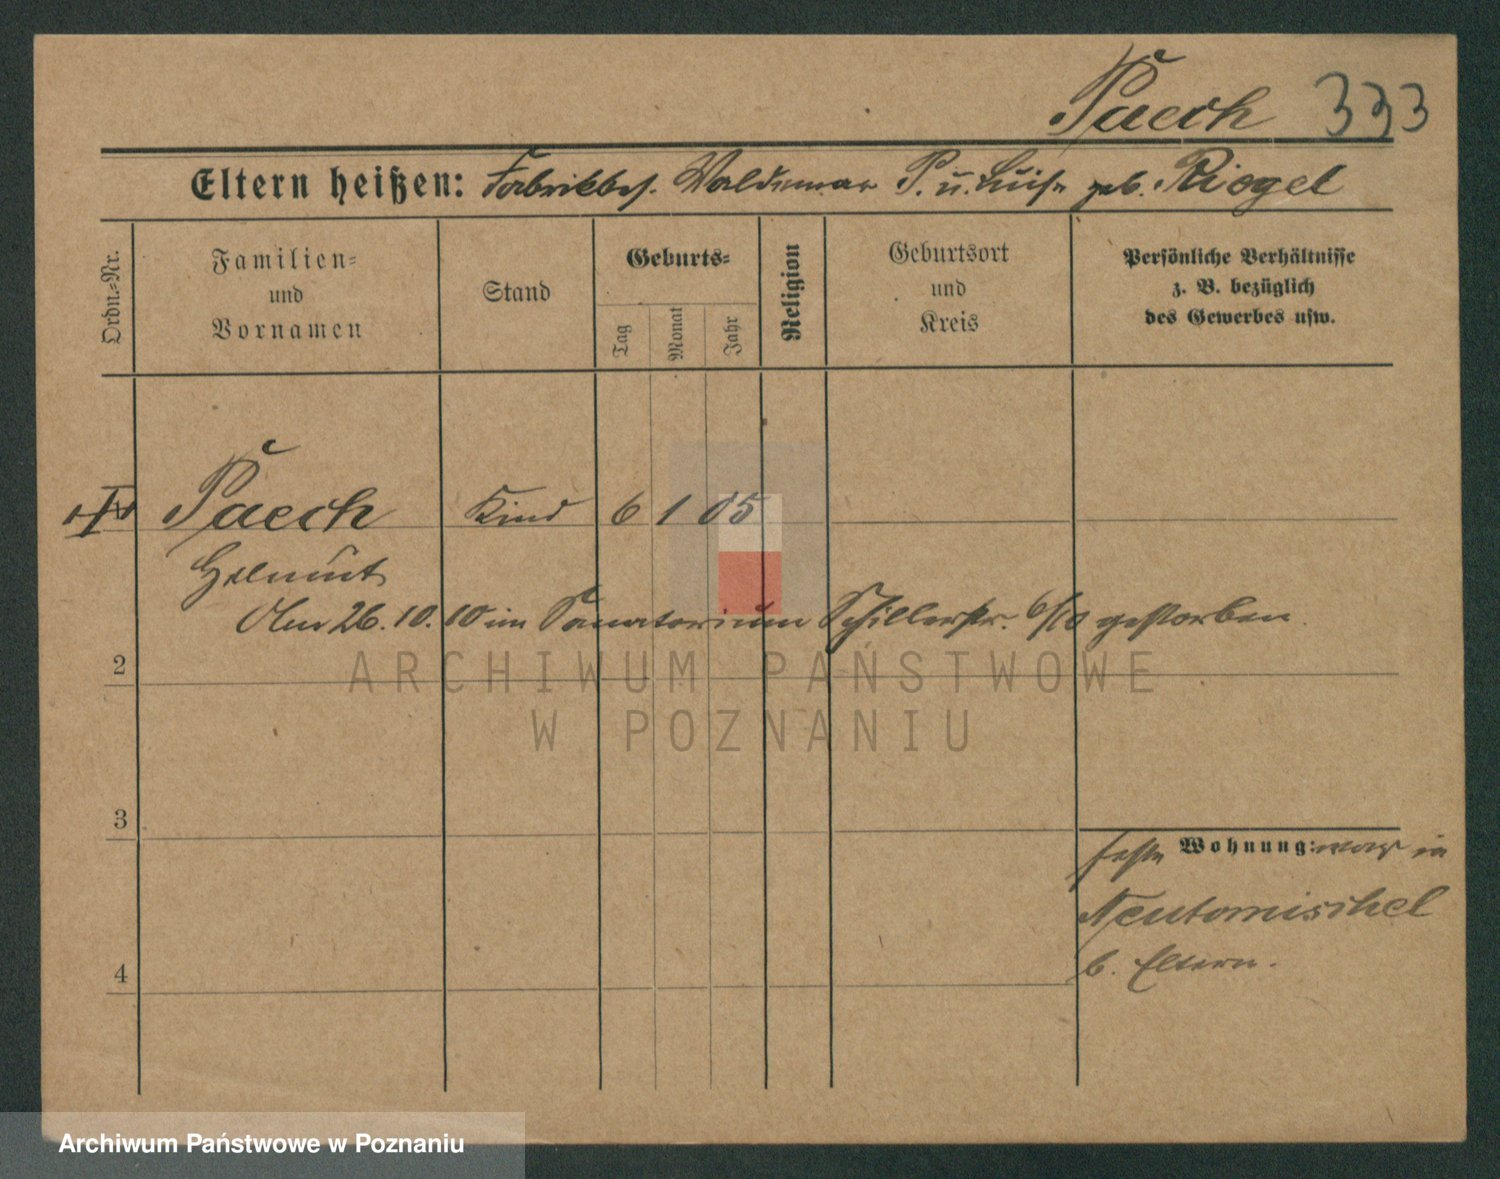 Paech 333
Eltern heißen: Fabrikbes. Waldemar P. u. Luise geb. Riegel
Ordn.=Nr.
Familien=
und
Vornamen
Stand
Geburts=
Tag
Monat
Jahr
Religion
Geburtsort
und
Kreis
Persönliche Verhältnisse
z. B. bezüglich
des Gewerbes usw.
Paech Kind 6 1 05
Helmut
Am 26. 10. 10 im Sanatorium Schillerstr. 6/10 gestorben.
2
ARCHIWUM PAŃSTWOWE
W POZNANIU
3
feste Wohnung: war in
Neutomischel
b. Eltern.
4
Archiwum Państwowe w Poznaniu